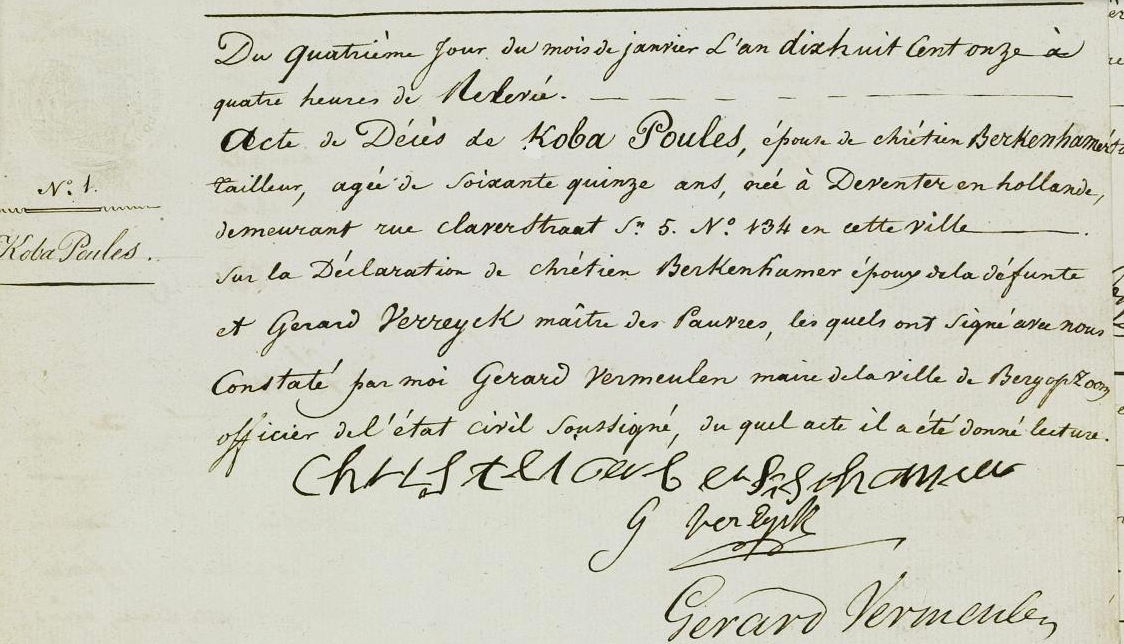 Du quatrième Jour du mois de janvier L'an dixhuit Cent onze à
quatre heures de Relevé.
Acte de Décès de Koba Poules, épouse de chrétien Berkenhamer
tailleur, agée de soixante quinze ans, née à Deventer en hollande,
demeurant rue claverStraat Sn 5. No 134 en cette ville
sur la Déclaration de chrétien Berkenhamer époux de la défunte
et Gerard Verreyck maître des Pauvres, les quels ont signé avec nous
Constaté par moi Gerard Vermeulen maire de la ville de Bergopzoom
officier de l'état civil soussigné, du quel acte il a été donné lecture.
No. 1.
Koba Poules.
G Verreyck
Gerard Vermeulen